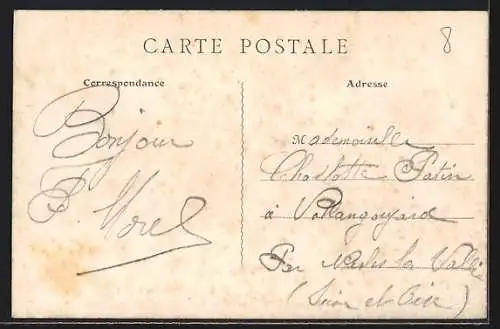 CARTE POSTALE
8
Correspondance
Adresse
Bonjour
Morel
Mademoiselle
Charlotte
à Vallangoujard
Par Nesles la Vallée
(Seine et Oise)